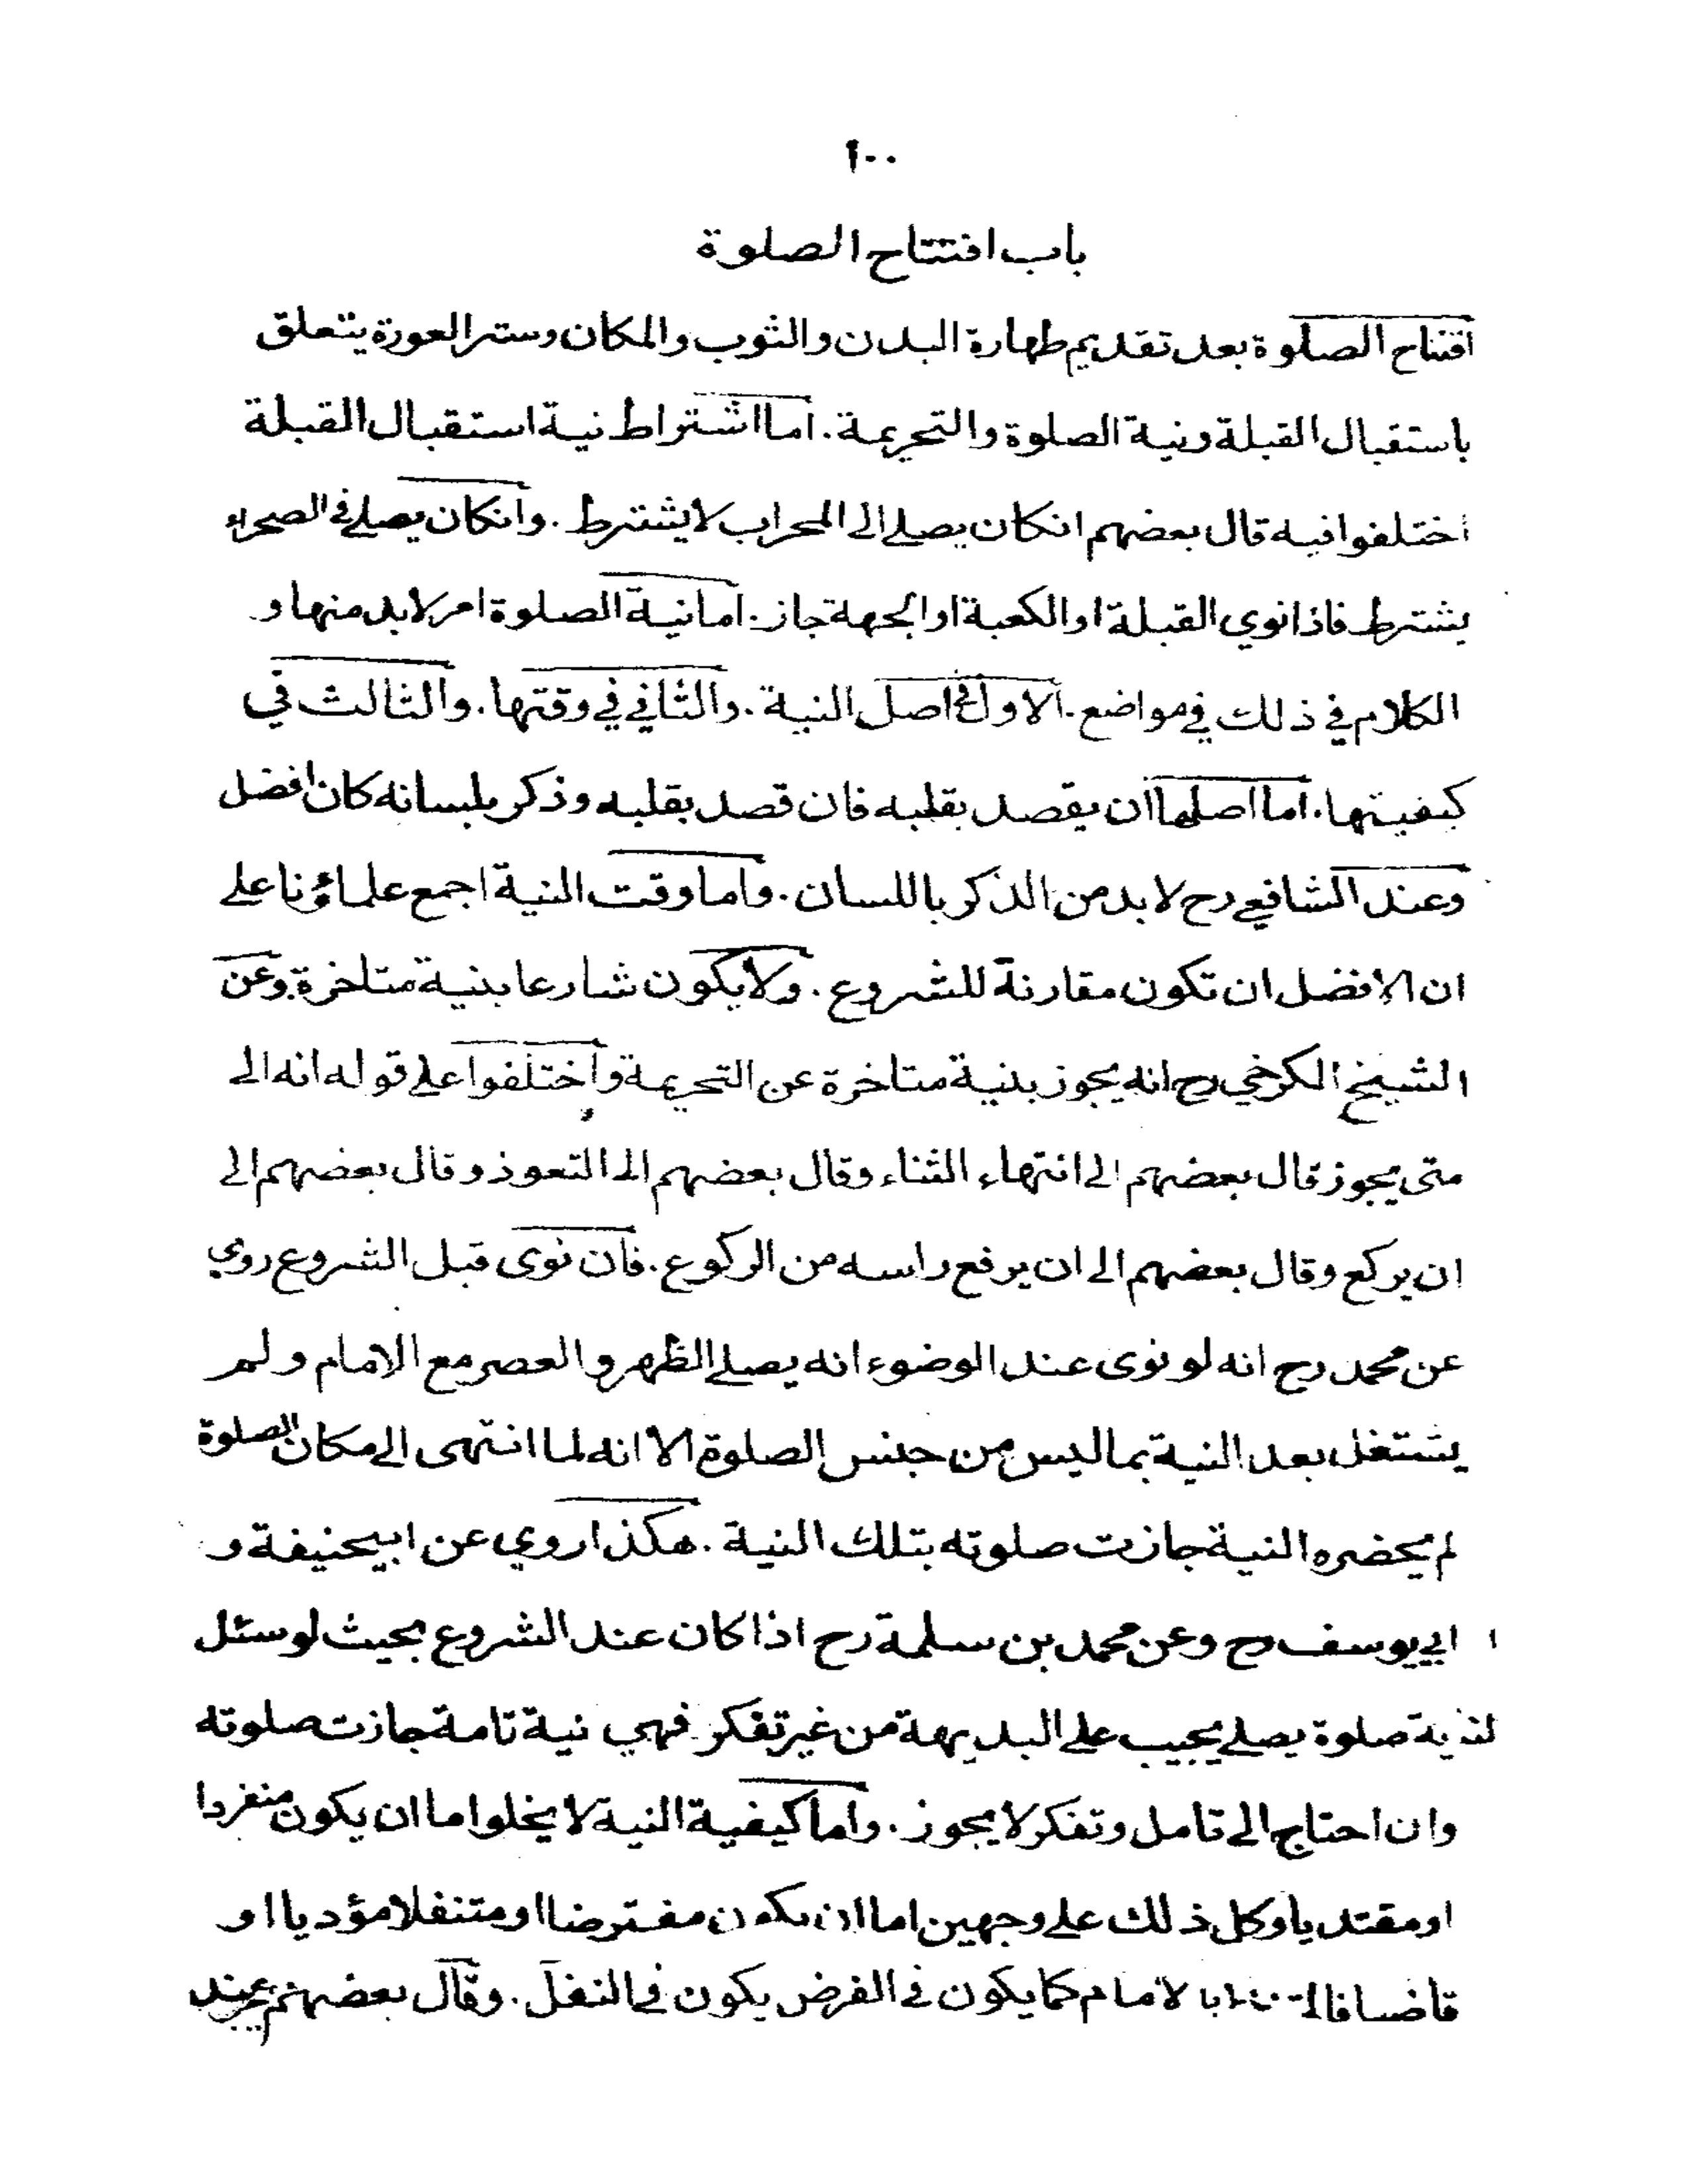 ١٠٠
باب افتتاح الصلوة
افتتاح الصلوة بعد تقديم طهارة البدن والثوب والمكان وستر العورة يتعلق
باستقبال القبلة ونية الصلوة والتحريمة. اما اشتراط نية استقبال القبلة
اختلفوا فيه قال بعضهم انكان يصلے الى المحراب لا يشترط. وانكان يصلے في الصحراء
يشترط فاذا نوي القبلة او الكعبة او الجهة جاز. اما نية الصلوة امر لابد منها و
الكلام في ذلك في مواضع. الاول في اصل النية. والثاني في وقتها. والثالث في
كيفيتها. اما اصلها ان يقصد بقلبه فان قصد بقلبه وذكر بلسانه كان افضل
وعند الشافعي رح لابد من الذكر باللسان. واما وقت النية اجمع علماؤنا علے
ان الافضل ان تكون مقارنة للشروع. ولا يكون شارعا بنية متاخرة. وعن
الشيخ الكرخي رح انه يجوز بنية متاخرة عن التحريمة واختلفوا علے قوله انه الے
متى يجوز قال بعضهم الے انتهاء الثناء وقال بعضهم الے التعوذ وقال بعضهم الے
ان يركع وقال بعضهم الے ان يرفع راسه من الركوع. فان نوى قبل الشروع روي
عن محمد رح انه لو نوى عند الوضوء انه يصلے الظهر والعصر مع الامام ولم
يشتغل بعد النية بما ليس من جنس الصلوة الا انه لما انتهى الے مكان الصلوة
لم يحضره النية جازت صلوته بتلك النية. هكذا روي عن ابيحنيفة و
ابي يوسف رح وعن محمد بن سلمة رح اذا كان عند الشروع بحيث لو سئل
صلوة يصلے يجيب علے البديهة من غير تفكر فهي نية تامة جازت صلوته
وان احتاج الے تامل وتفكر لا يجوز. واما كيفية النية لا يخلوا اما ان يكون منفردا
او مقتديا وكل ذلك علے وجهين اما ان يكون مفترضا او متنفلا مؤديا او
قاضيا بالامام كما يكون في الفرض يكون في النفل. وقال بعضهم